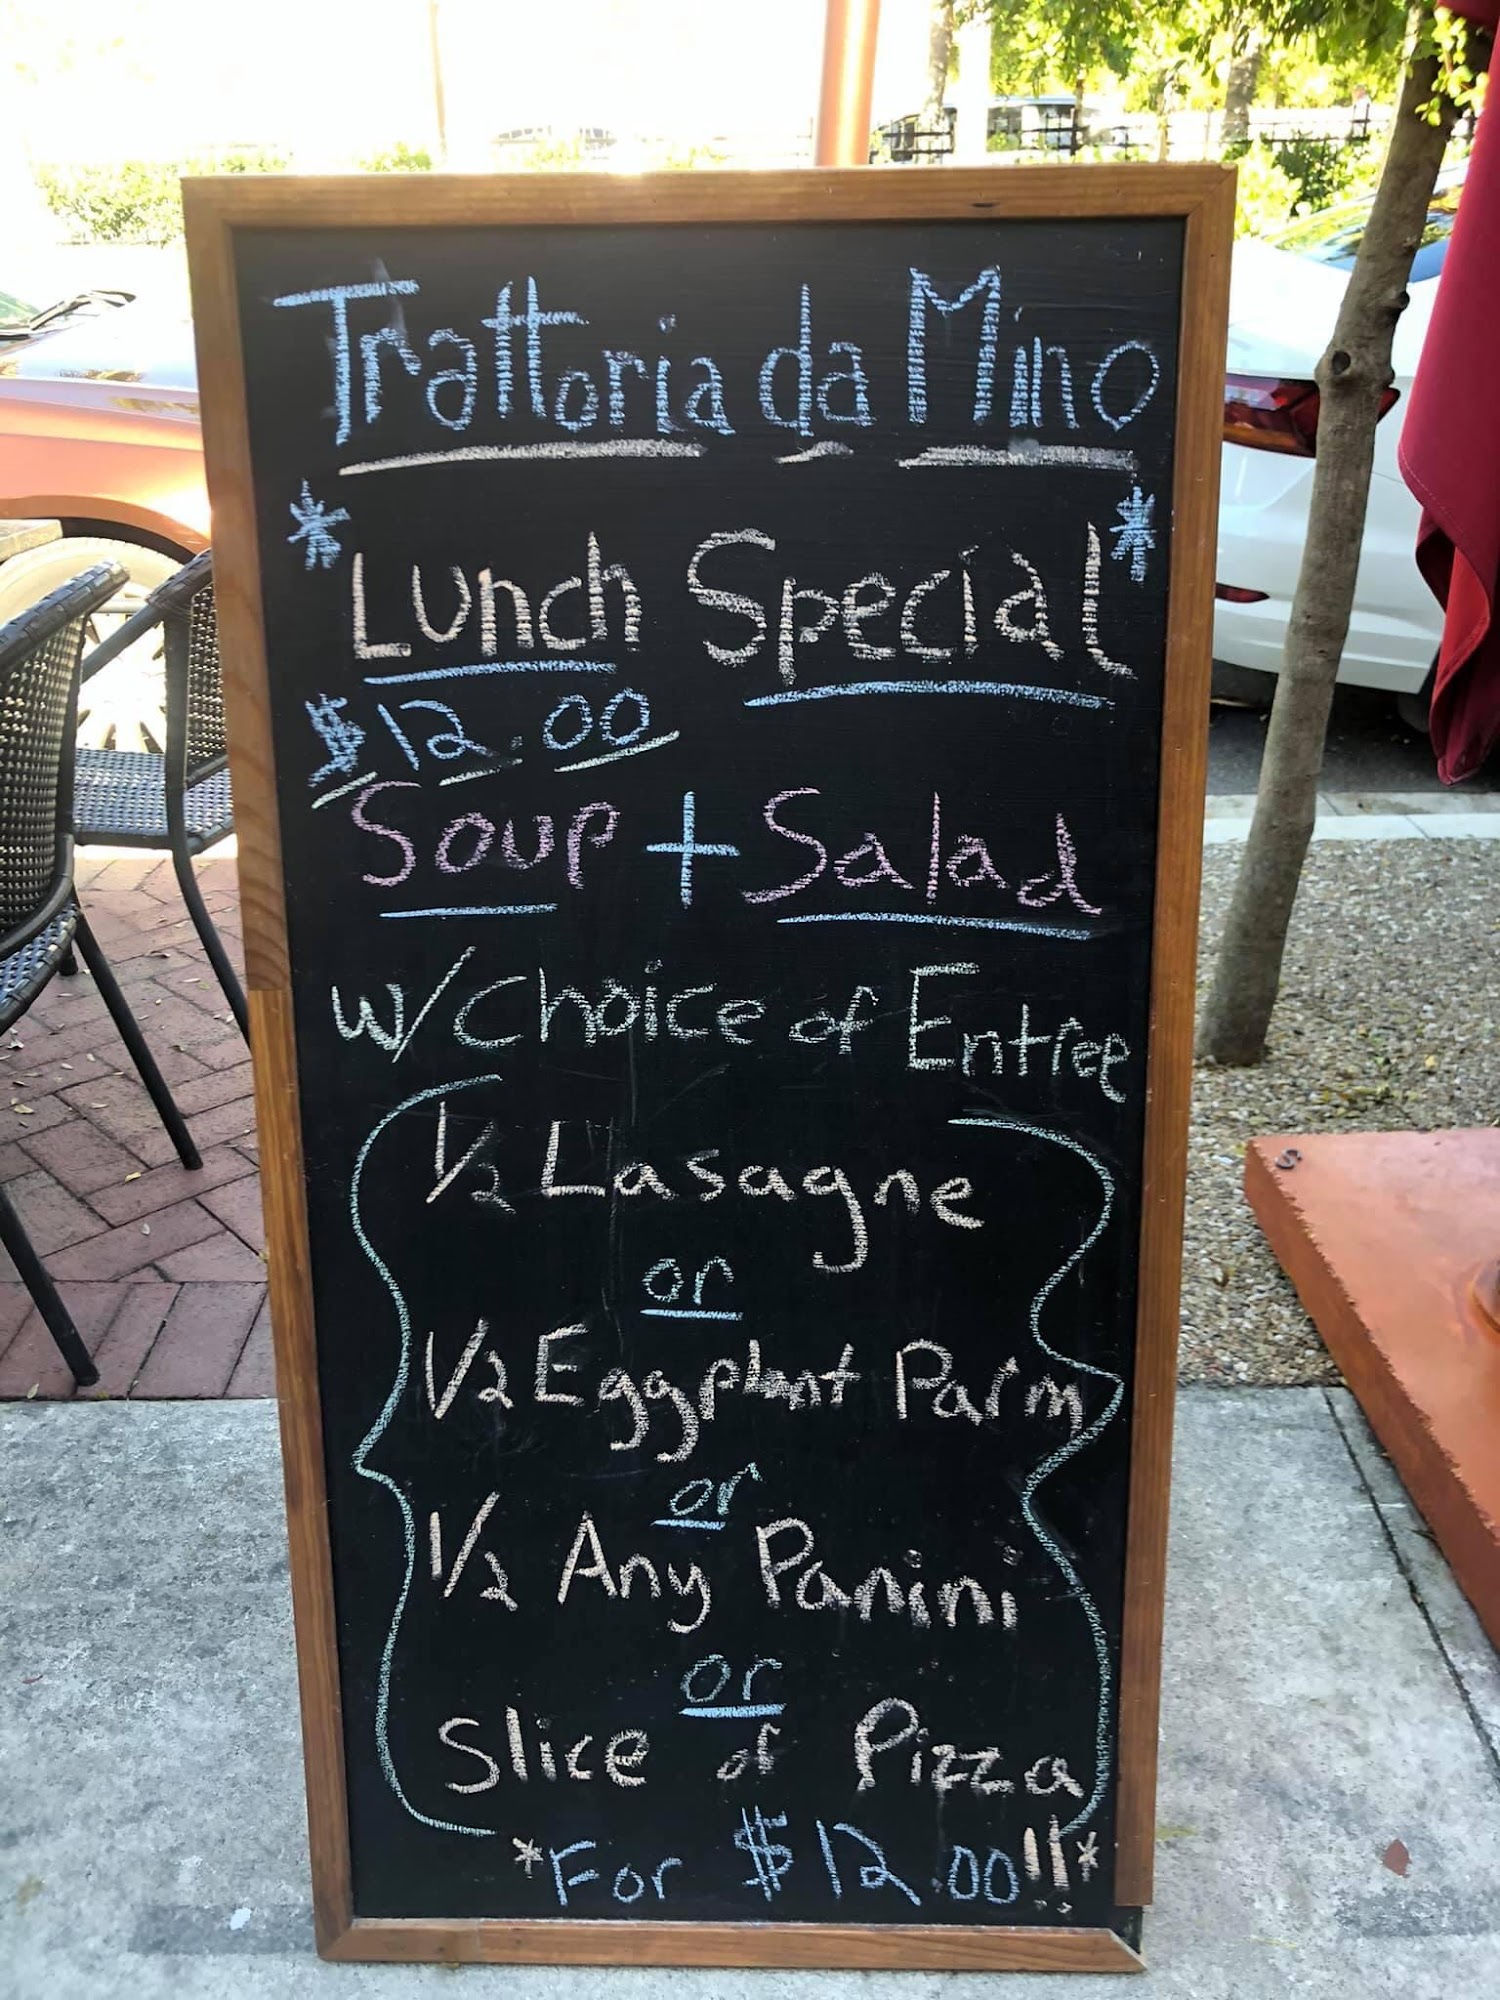 Trattoria da Mino
*Lunch Special*
$12.00
Soup + Salad
w/Choice of Entree
1/2 Lasagne
or
1/2 Eggplant Parm
or
1/2 Any Panini
or
Slice of Pizza
*For $12.00!!*
S